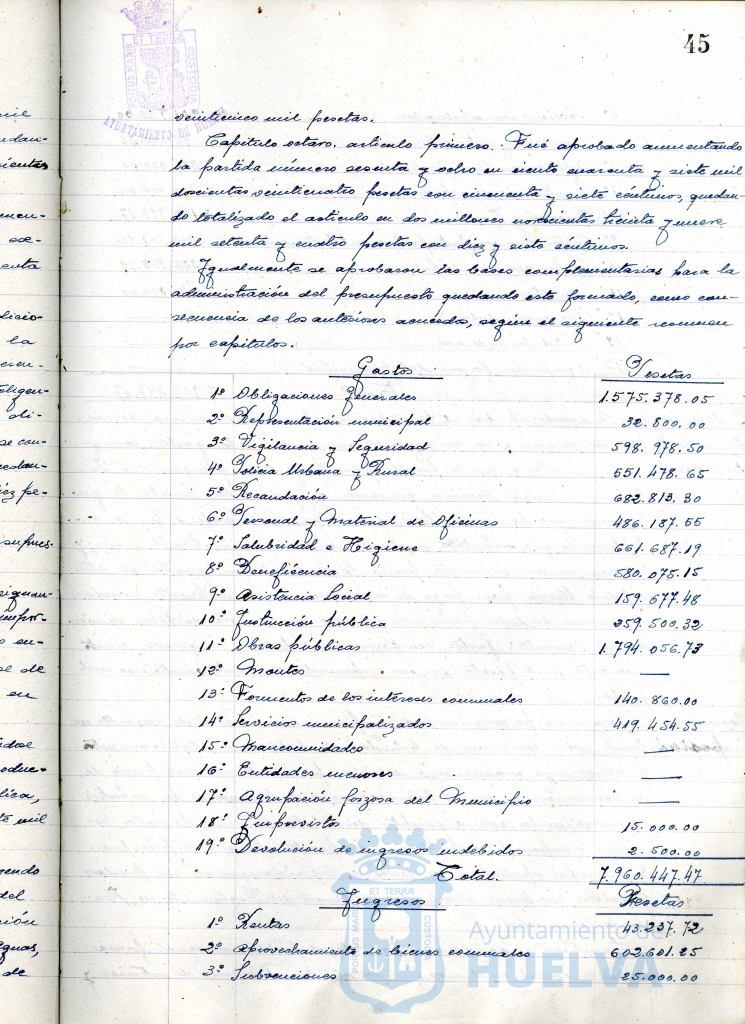 45
veinticinco mil pesetas.
Capítulo octavo, artículo primero. Fué aprobado aumentando
la partida número sesenta y ocho en ciento cuarenta y siete mil
doscientas veinticuatro pesetas con cincuenta y siete céntimos, quedan-
do totalizado el artículo en dos millones novecientas treinta y nueve
mil setenta y cuatro pesetas con diez y siete céntimos.
Igualmente se aprobaron las bases complementarias para la
administración del presupuesto quedando este formado, como con-
secuencia de los anteriores acuerdos, según el siguiente resumen
por capítulos.
Gastos Pesetas
1º Obligaciones generales 1.575.378.05
2º Representación municipal 32.800.00
3º Vigilancia y Seguridad 598.978.50
4º Policia Urbana y Rural 551.478.65
5º Recaudación 682.813.30
6º Personal y Material de Oficinas 486.187.55
7º Salubridad e Higiene 661.687.19
8º Beneficencia 580.075.15
9º Asistencia Social 159.677.48
10º Instrucción pública 259.500.32
11º Obras públicas 1.794.056.73
12º Montes —
13º Fomentos de los intereses comunales 140.860.00
14º Servicios municipalizados 419.454.55
15º Mancomunidades —
16º Entidades menores —
17º Agrupación forzosa del Municipio —
18º Imprevistos 15.000.00
19º Devolución de ingresos indebidos 2.500.00
Total. 7.960.447.47
Ingresos Pesetas
1º Rentas 43.237.72
2º Aprovechamiento de bienes comunales 602.601.25
3º Subvenciones 25.000.00
AYUNTAMIENTO DE
Ayuntamiento de
HUELVA